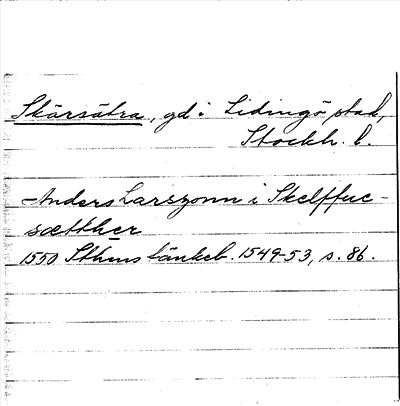 Skärsätra, gd i Lidingö stad,
Stockh. l.
Anders Larszonn i Skelffuc-
sætther
1550 Sthms tänkeb. 1549-53, s. 86.